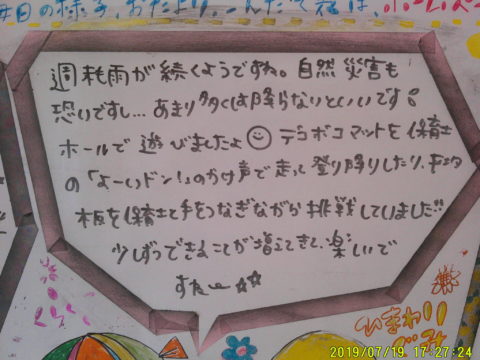 毎日の様子、おたより、こんだて表は、ホームペー
週も雨が続くようですね。自然災害も
恐いですし…あまり多くは降らないといいです。
ホールで遊びましたよ☺デコボコマットを保育士
の「よーいドン!」のかけ声で走って登り降りしたり、平均
板を保育士と手をつなぎながら挑戦していました!!
少しずつできることが増えてきて、楽しいで
すね〜☆☆
ひまわり
ぐみ
2019/07/19 17:27:24